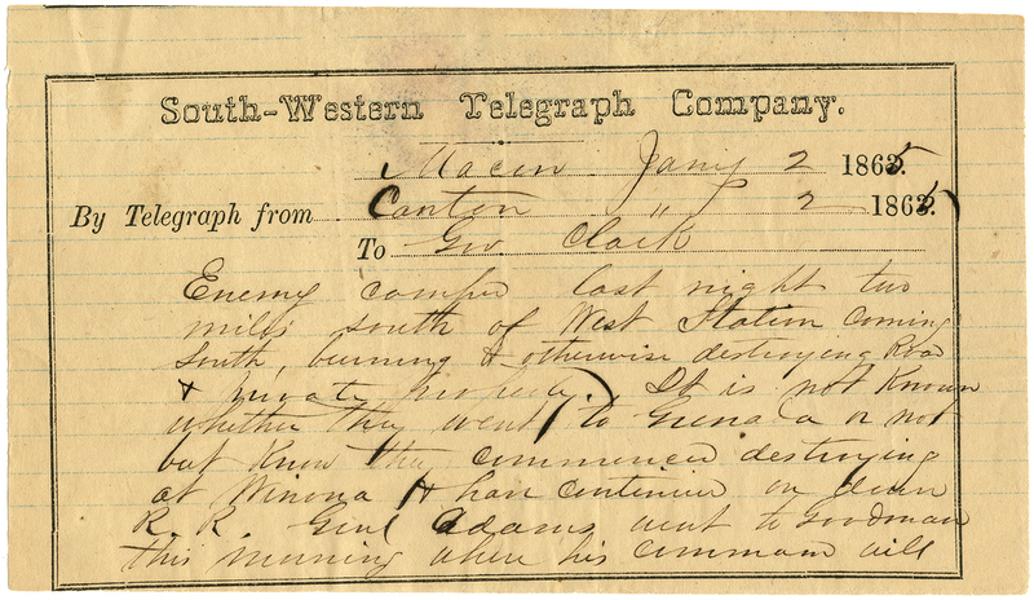 South-Western Telegraph Company.
Macon Jany 2 1865.
By Telegraph from Canton " 2 1865.
To Gov Clark
Enemy camped last night two
miles south of West Station coming
South, burning & otherwise destroying Road
& private property. It is not Known
whether they went to Grenada or not
but Know they commenced destroying
at Winona & have continued on down
R. R. Genl Adams went to Goodman
this morning where his command will